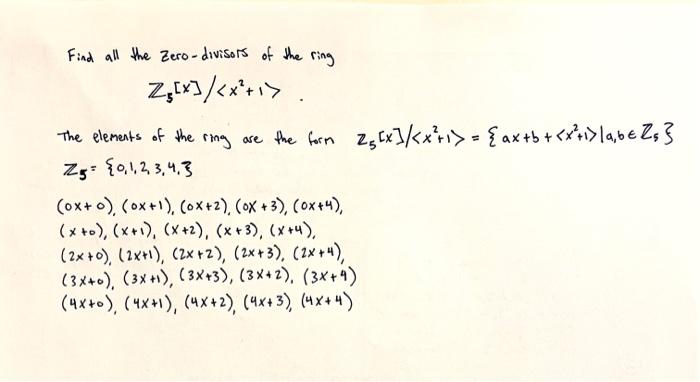 Find all the zero-divisors of the ring
ℤ₅[x]/<x²+1> .
The elements of the ring are the form ℤ₅[x]/<x²+1> = {ax+b+<x²+1>|a,b∈ℤ₅}
ℤ₅ = {0,1,2,3,4,}
(0x+0), (0x+1), (0x+2), (0x+3), (0x+4),
(x+0), (x+1), (x+2), (x+3), (x+4),
(2x+0), (2x+1), (2x+2), (2x+3), (2x+4),
(3x+0), (3x+1), (3x+3), (3x+2), (3x+4)
(4x+0), (4x+1), (4x+2), (4x+3), (4x+4)